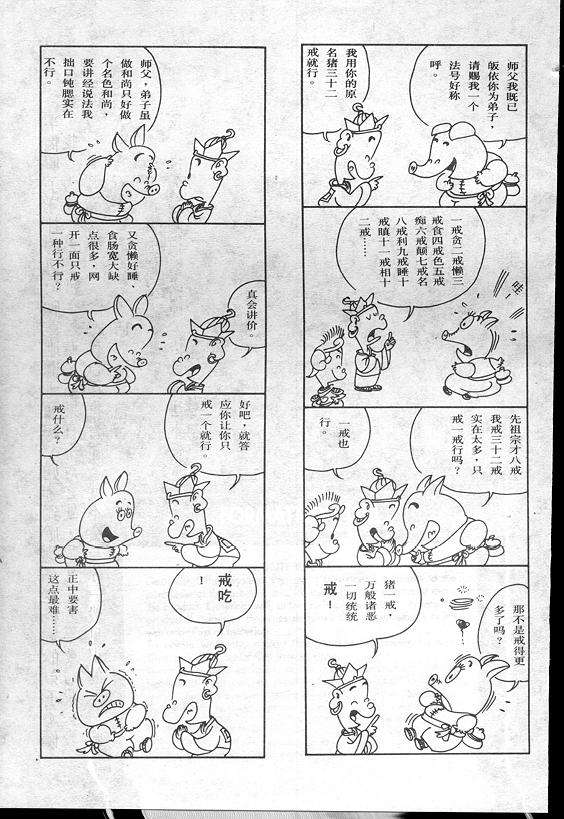 师父我既已
皈依你为弟子，
请赐我一个
法号好称
呼。
我用你的原
名猪三十二
戒就行。
哇！
一戒贪二戒懒三
戒食四戒色五戒
痴六戒颠七戒名
八戒利九戒睡十
戒瞋十一戒相十
二戒……
先祖宗才八戒
我戒三十二戒
实在太多，只
戒一戒行吗？
一戒也
行。
那不是戒得更
多了吗？
猪一戒，
万般诸恶
一切统统
戒！
师父，弟子虽
做和尚只好做
个名色和尚，
要讲经说法我
拙口钝腮实在
不行。
又贪懒好睡，
食肠宽大缺
点很多，网
开一面只戒
一种行不行？
真会讲价。
好吧，就答
应你让你只
戒一个就行。
戒什么？
戒吃
！
正中要害
这点最难……